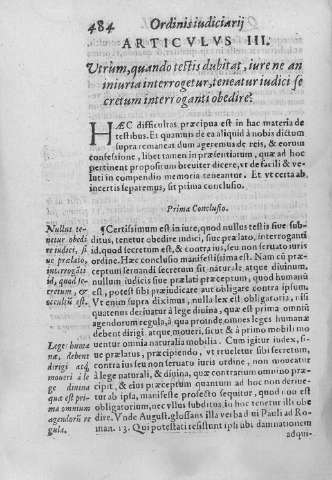 484 Ordinis iudiciarij
ARTICVLVS III.
Vtrum, quando testis dubitat, iure ne an
iniuria interrogetur, teneatur iudici se
cretum interroganti obedire?
HÆC difficultas præcipua est in hac materia de
testibus. Et quamuis de ea aliquid à nobis dictum
supra remaneat dum ageremus de reis, & eorum
confessione, libet tamen in præsentiarum, quæ ad hoc
pertinent propositum breuiter dicere, vt de facili & ve-
luti in compendio memoria teneantur. Et vt certa ab
incertis separemus, sit prima conclusio.
Prima Conclusio.
Nullus te-
netur obedi
re iudici, si
ue prælato,
interroganti
id, quod se-
cretum, &
occultū est.
¶Certissimum est in iure, quod nullus testis siue sub-
ditus, tenetur obedire iudici, siue prælato, interroganti
id, quod secretum est, & contra ius, seu non seruato iuris
ordine. Hæc conclusio manifestissima est. Nam cū præ-
ceptum seruandi secretum sit naturale atque diuinum,
nullum iudicis siue prælati præceptum, quod humanū
est, potest sibi præiudicare aut obligare contra ipsum.
Vt enim supra diximus, nulla lex est obligatoria, ni si
quatenus deriuatur à lege diuina, quæ est prima omniū
agendorum regula, à qua proinde omnes leges humanæ
debent dirigi atque moueri, sicut & à primo mobili mo
uentur omnia naturalia mobilia. Cum igitur iudex, si-
ue prælatus, præcipiendo, vt reueletur sibi secretum,
contra ius seu non seruato iuris ordine, non moueatur
à lege naturali, & diuina, quæ contrarium omnino præ-
cipit, & eius præceptum quatum ad hoc non deriue-
tur ab ipsa, manifeste profecto sequitur, quod non est
obligatorium, nec vllus subditus in hoc tenetur illi obe
dire. Vnde August. glossans illa verba diui Pauli ad Ro-
man. 13. Qui potestati resistunt ipsi sibi damnationem
adqui-
Lege humana
næ, debent
dirigi atq̃
moueri à le
ge diuina
quæ est pri-
ma omnium
agendorū re
gula.